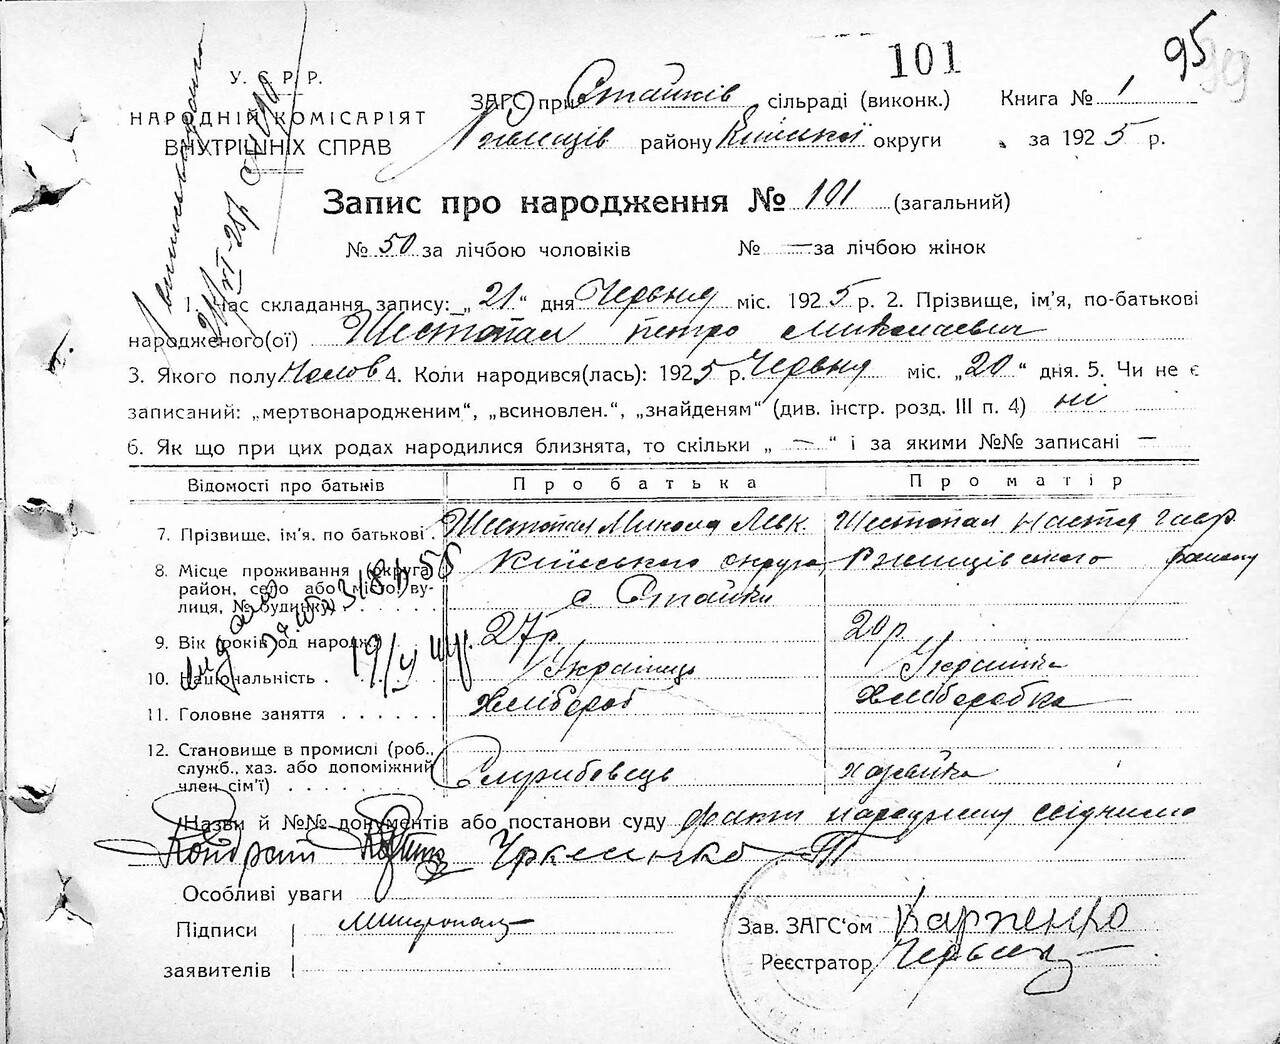 101
95
99
У. С. Р. Р.
НАРОДНІЙ КОМІСАРІЯТ
ВНУТРІШНІХ СПРАВ
ЗАГС при Стайків сільраді (виконк.) Книга № 1
району Київської округи за 1925 р.
Запис про народження № 101 (загальний)
№ 50 за лічбою чоловіків № — за лічбою жінок
1. Час складання запису: „21“ дня Червня міс. 1925 р. 2. Прізвище, ім'я, по-батькові
народженого(ої) Шестопал Петро Миколаевич
3. Якого полу Чолов 4. Коли народився(лась): 1925 р. Червня міс. „20“ дня. 5. Чи не є
записаний: „мертвонародженим“, „всиновлен.“, „знайденям“ (див. інстр. розд. III п. 4) ні
6. Як що при цих родах народилися близнята, то скільки „—“ і за якими №№ записані —
Відомості про батьків Про батька Про матір
7. Прізвище, ім'я, по батькові. Шестопал Микола Шестопал Настя Гавр
8. Місце проживання (округа, Київського округа, Ржищівського району
район, село або місто, ву-
лиця, № будинку) с Стайки
9. Вік (років од народж.) 27р. 20р
10. Національність . Українець Українка
11. Головне заняття . . . . . . Хлібороб Хліборобка
12. Становище в промислі (роб.,
служб., хаз. або допоміжний хазяйка
член сім'ї) . . . . . . . .
Назви й №№ документів або постанови суду факт народжину свідчимо
Кондрат
Особливі уваги
Підписи
заявителів
Зав. ЗАГС'ом Карпенко
Реєстратор
видано
19/V